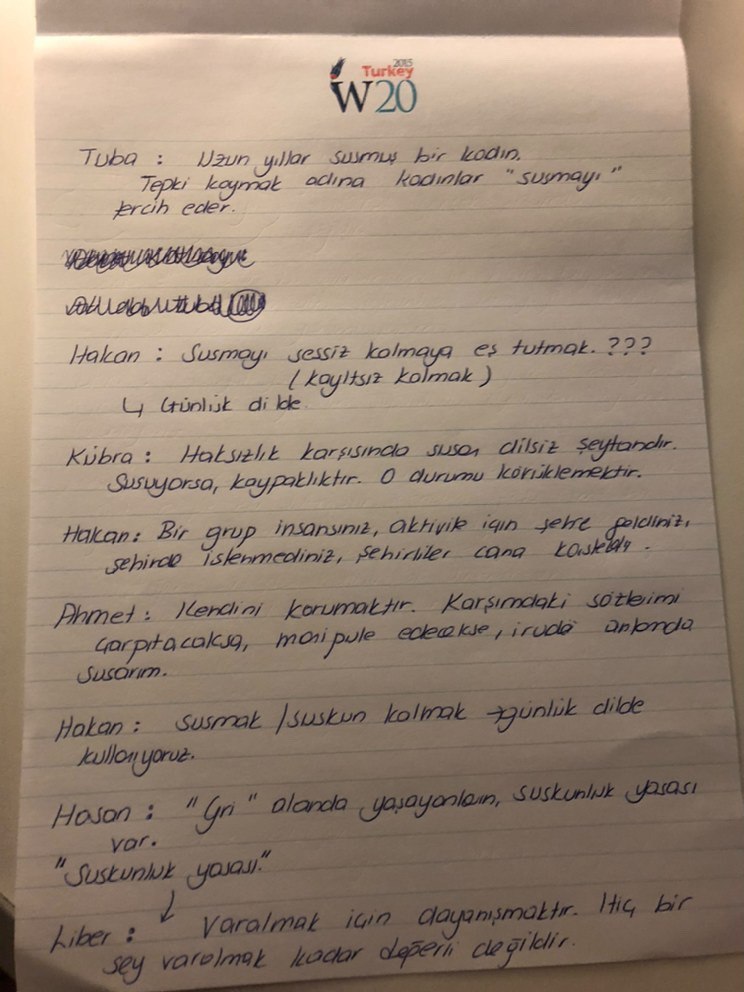 2015
Turkey
W20
Tuba : Uzun yıllar susmuş bir kadın.
Tepki koymak adına kadınlar "susmayı"
tercih eder.
Hakan : Susmayı sessiz kalmaya eş tutmak. ???
(kayıtsız kalmak)
↳ Günlük dilde
Kübra : Haksızlık karşısında susan dilsiz şeytandır.
Susuyorsa, kaypaklıktır. O durumu körüklemektir.
Hakan : Bir grup insansınız, aktivite için şehre geldiniz,
şehirde istenmediniz, şehirliler cana
Ahmet : Kendini korumaktır. Karşımdaki sözlerimi
çarpıtacaksa, manipule edecekse, anlamda
susarım.
Hakan : Susmak / suskun kalmak → günlük dilde
kullanıyoruz.
Hasan : "Gri" alanda yaşayanların, suskunluk yasası
var.
"Suskunluk yasası."
Liber : Varolmak için dayanışmaktır. Hiç bir
şey varolmak kadar değerli değildir.